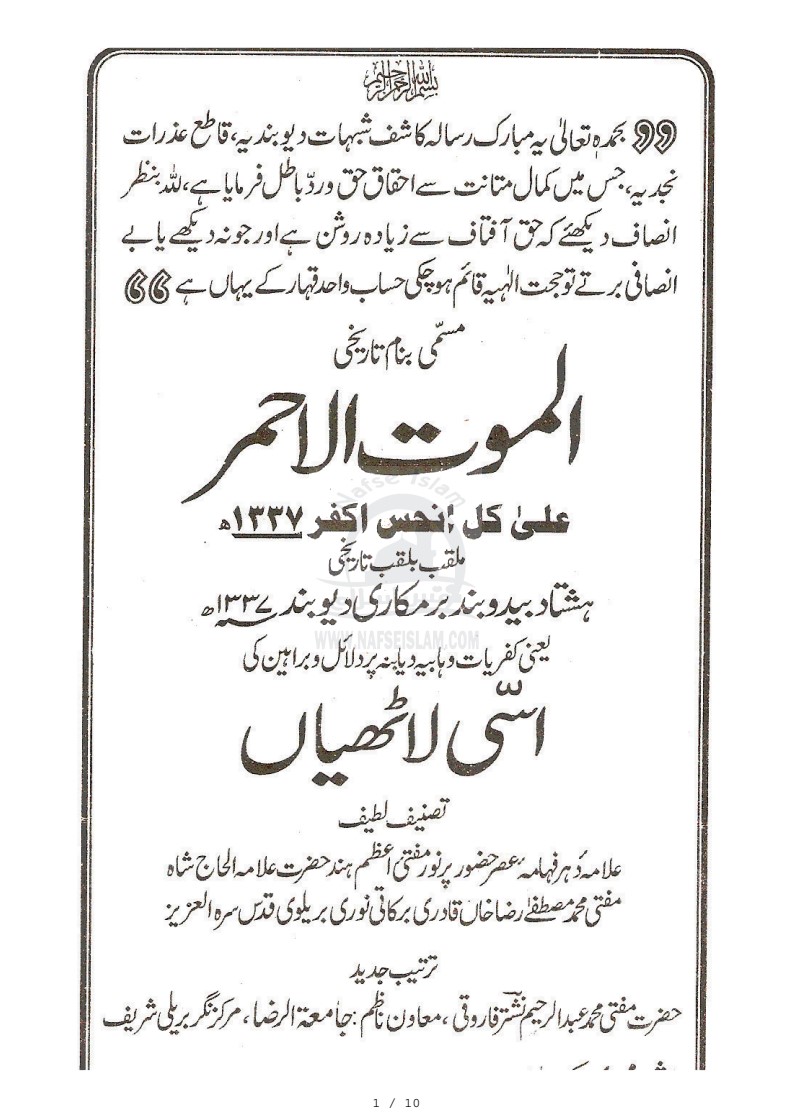 بسم اللہ الرحمن الرحیم
بحمدہٖ تعالیٰ یہ مبارک رسالہ کاشف شبہات دیوبندیہ، قاطع عذرات
نجدیہ، جس میں کمال متانت سے احقاق حق و ردّ باطل فرمایا ہے، للہ بنظر
انصاف دیکھئے کہ حق آفتاب سے زیادہ روشن ہے اور جو نہ دیکھے یا بے
انصافی برتے تو حجت الٰہیہ قائم ہو چکی حساب واحد قہار کے یہاں ہے
مسمّٰی بنام تاریخی
الموت الاحمر
علیٰ کل انحس اکفر ۱۳۳۷ھ
ملقب بلقب تاریخی
ہشتاد بید و بند بر مکاری دیوبند ۱۳۳۷ھ
یعنی کفریات وہابیہ دیابنہ پر دلائل و براہین کی
اسّی لاٹھیاں
Nafse Islam
WWW.NAFSEISLAM.COM
تصنیف لطیف
علامۂ دہر فہامۂ عصر حضور پر نور مفتیٔ اعظم ہند حضرت علامہ الحاج شاہ
مفتی محمد مصطفےٰ رضا خاں قادری برکاتی نوری بریلوی قدس سرہ العزیز
ترتیب جدید
حضرت مفتی محمد عبدالرحیم نشتر فاروقی، معاون ناظم: جامعۃ الرضا، مرکز نگر بریلی شریف
1 / 10